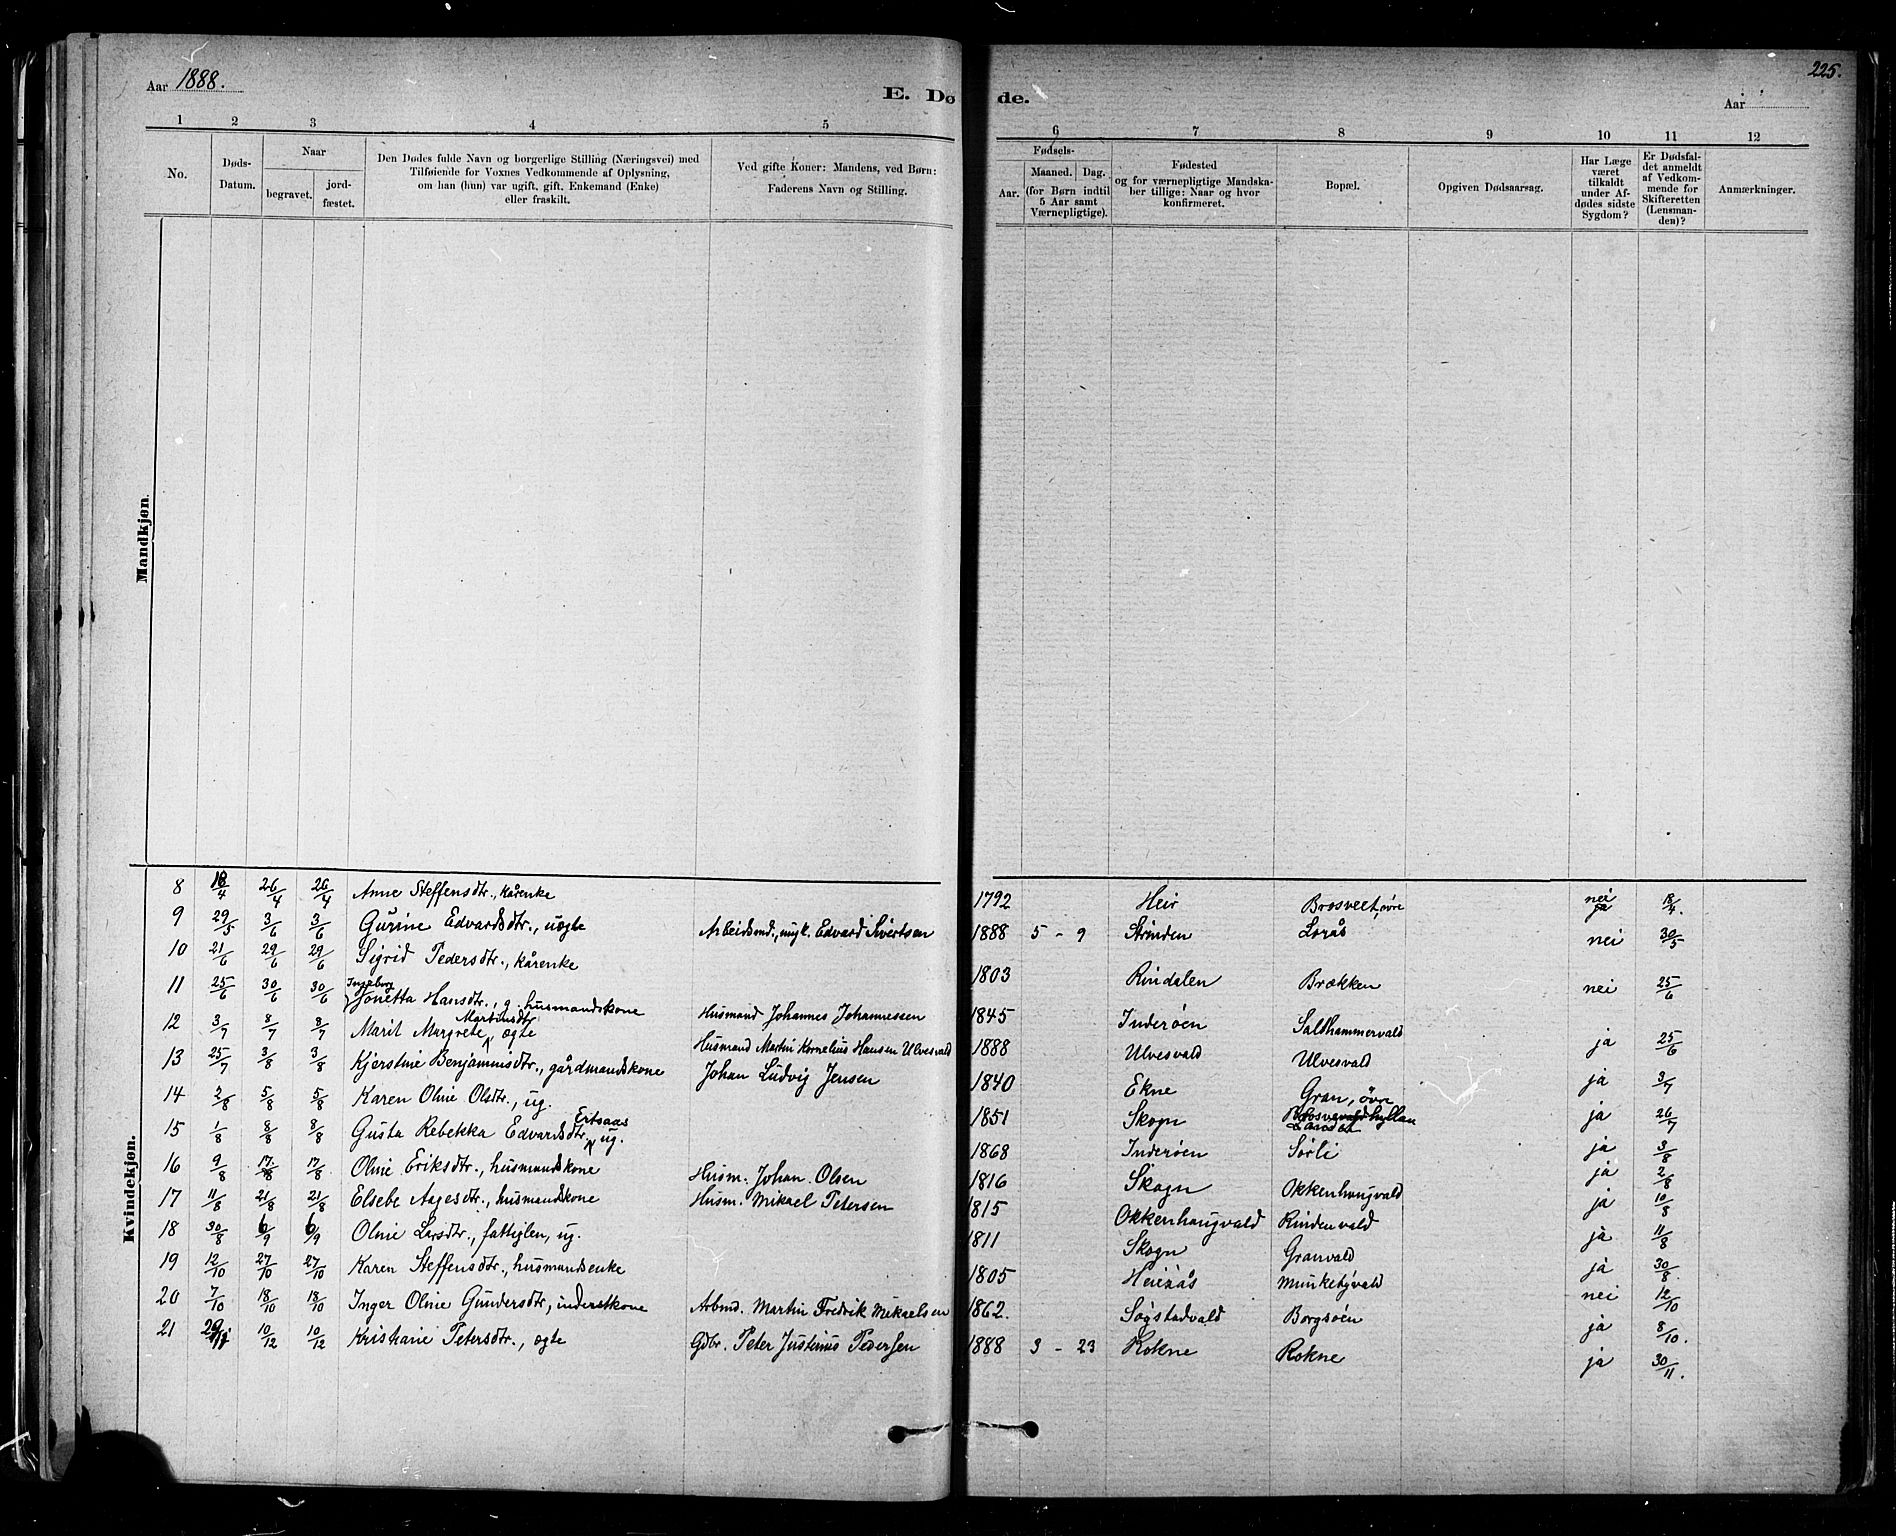 Aar 1888.
E. Døde.
225.
Aar
1 2 3 4 5 6 7 8 9 10 11 12
No.
Døds-
Datum.
Naar
begravet.
jord-
fæstet.
Den Dødes fulde Navn og borgerlige Stilling (Næringsvei) med
Tilføiende for Voxnes Vedkommende af Oplysning,
om han (hun) var ugift, gift, Enkemand (Enke)
eller fraskilt.
Ved gifte Koner: Mandens, ved Børn:
Faderens Navn og Stilling.
Fødsels-
Aar.
Maaned. Dag.
(for Børn indtil
5 Aar samt
Værnepligtige).
Fødested
og for værnepligtige Mandska-
ber tillige: Naar og hvor
konfirmeret.
Bopæl.
Opgiven Dødsaarsag.
Har Læge
været
tilkaldt
under Af-
dødes sidste
Sygdom?
Er Dødsfal-
det anmeldt
af Vedkom-
mende for
Skifteretten
(Lensman-
den)?
Anmærkninger.
Mandkjøn.
Kvindekjøn.
8 18/4 26/4 26/4 Anne Steffensdtr., kårenke 1792 Heir Brosveet, øvre nei 18/4.
9 29/5 3/6 3/6 Gurine Edvardsdtr., uægte Arbeidsmd., ungk. Edvard Sivertsen 1888 5 - 9 Strinden Lorås nei 30/5
10 21/6 29/6 29/6 Sigrid Pedersdtr., kårenke 1803 Rindalen Brækken nei 25/6
11 25/6 30/6 30/6 Ingeborg Jonetta Hansdtr., g. husmandskone Husmand Johannes Johannessen 1845 Inderøen Salthammervald ja 25/6
12 3/7 8/7 8/7 Marit Margrete Martinsdtr ægte Husmand Martin Kornelius Hansen Ulvesvald 1888 Ulvesvald Ulvesvald ja 3/7
13 25/7 3/8 3/8 Kjerstine Benjaminsdtr., gårdmandskone Johan Ludvig Jensen 1840 Ekne Gran, övre ja 26/7
14 2/8 5/8 5/8 Karen Oline Olsdtr., ug. 1851 Skogn ja 3/8
15 1/8 8/8 8/8 Gusta Rebekka Edvardsdtr. Eitsaas ug. 1868 Inderøen Sørli ja 2/8
16 9/8 17/8 17/8 Oline Eriksdtr., husmandskone Husm. Johan Olsen 1816 Skogn Okkenhaugvald ja 10/8
17 11/8 21/8 21/8 Elsebe Aagesdtr., husmandskone Husm. Mikael Petersen 1815 Okkenhaugvald Rindenvald ja 11/8
18 30/8 6/9 6/9 Oline Larsdtr., fattiglem, ug. 1811 Skogn Granvald ja 30/8.
19 12/10 27/10 27/10 Karen Steffensdtr., husmandsenke 1805 Heieås Munkebyvald nei 12/10
20 7/10 18/10 18/10 Inger Oline Gundersdtr, inderstkone Arbmd. Martin Fredrik Mikaelsen 1862. Søgstadvald Borgsøen ja 8/10.
21 29/11 10/12 10/12 Kristiane Petersdtr., ægte Gdbr. Peter Justinus Pedersen 1888 3 - 23 Rokne Rokne ja 30/11.